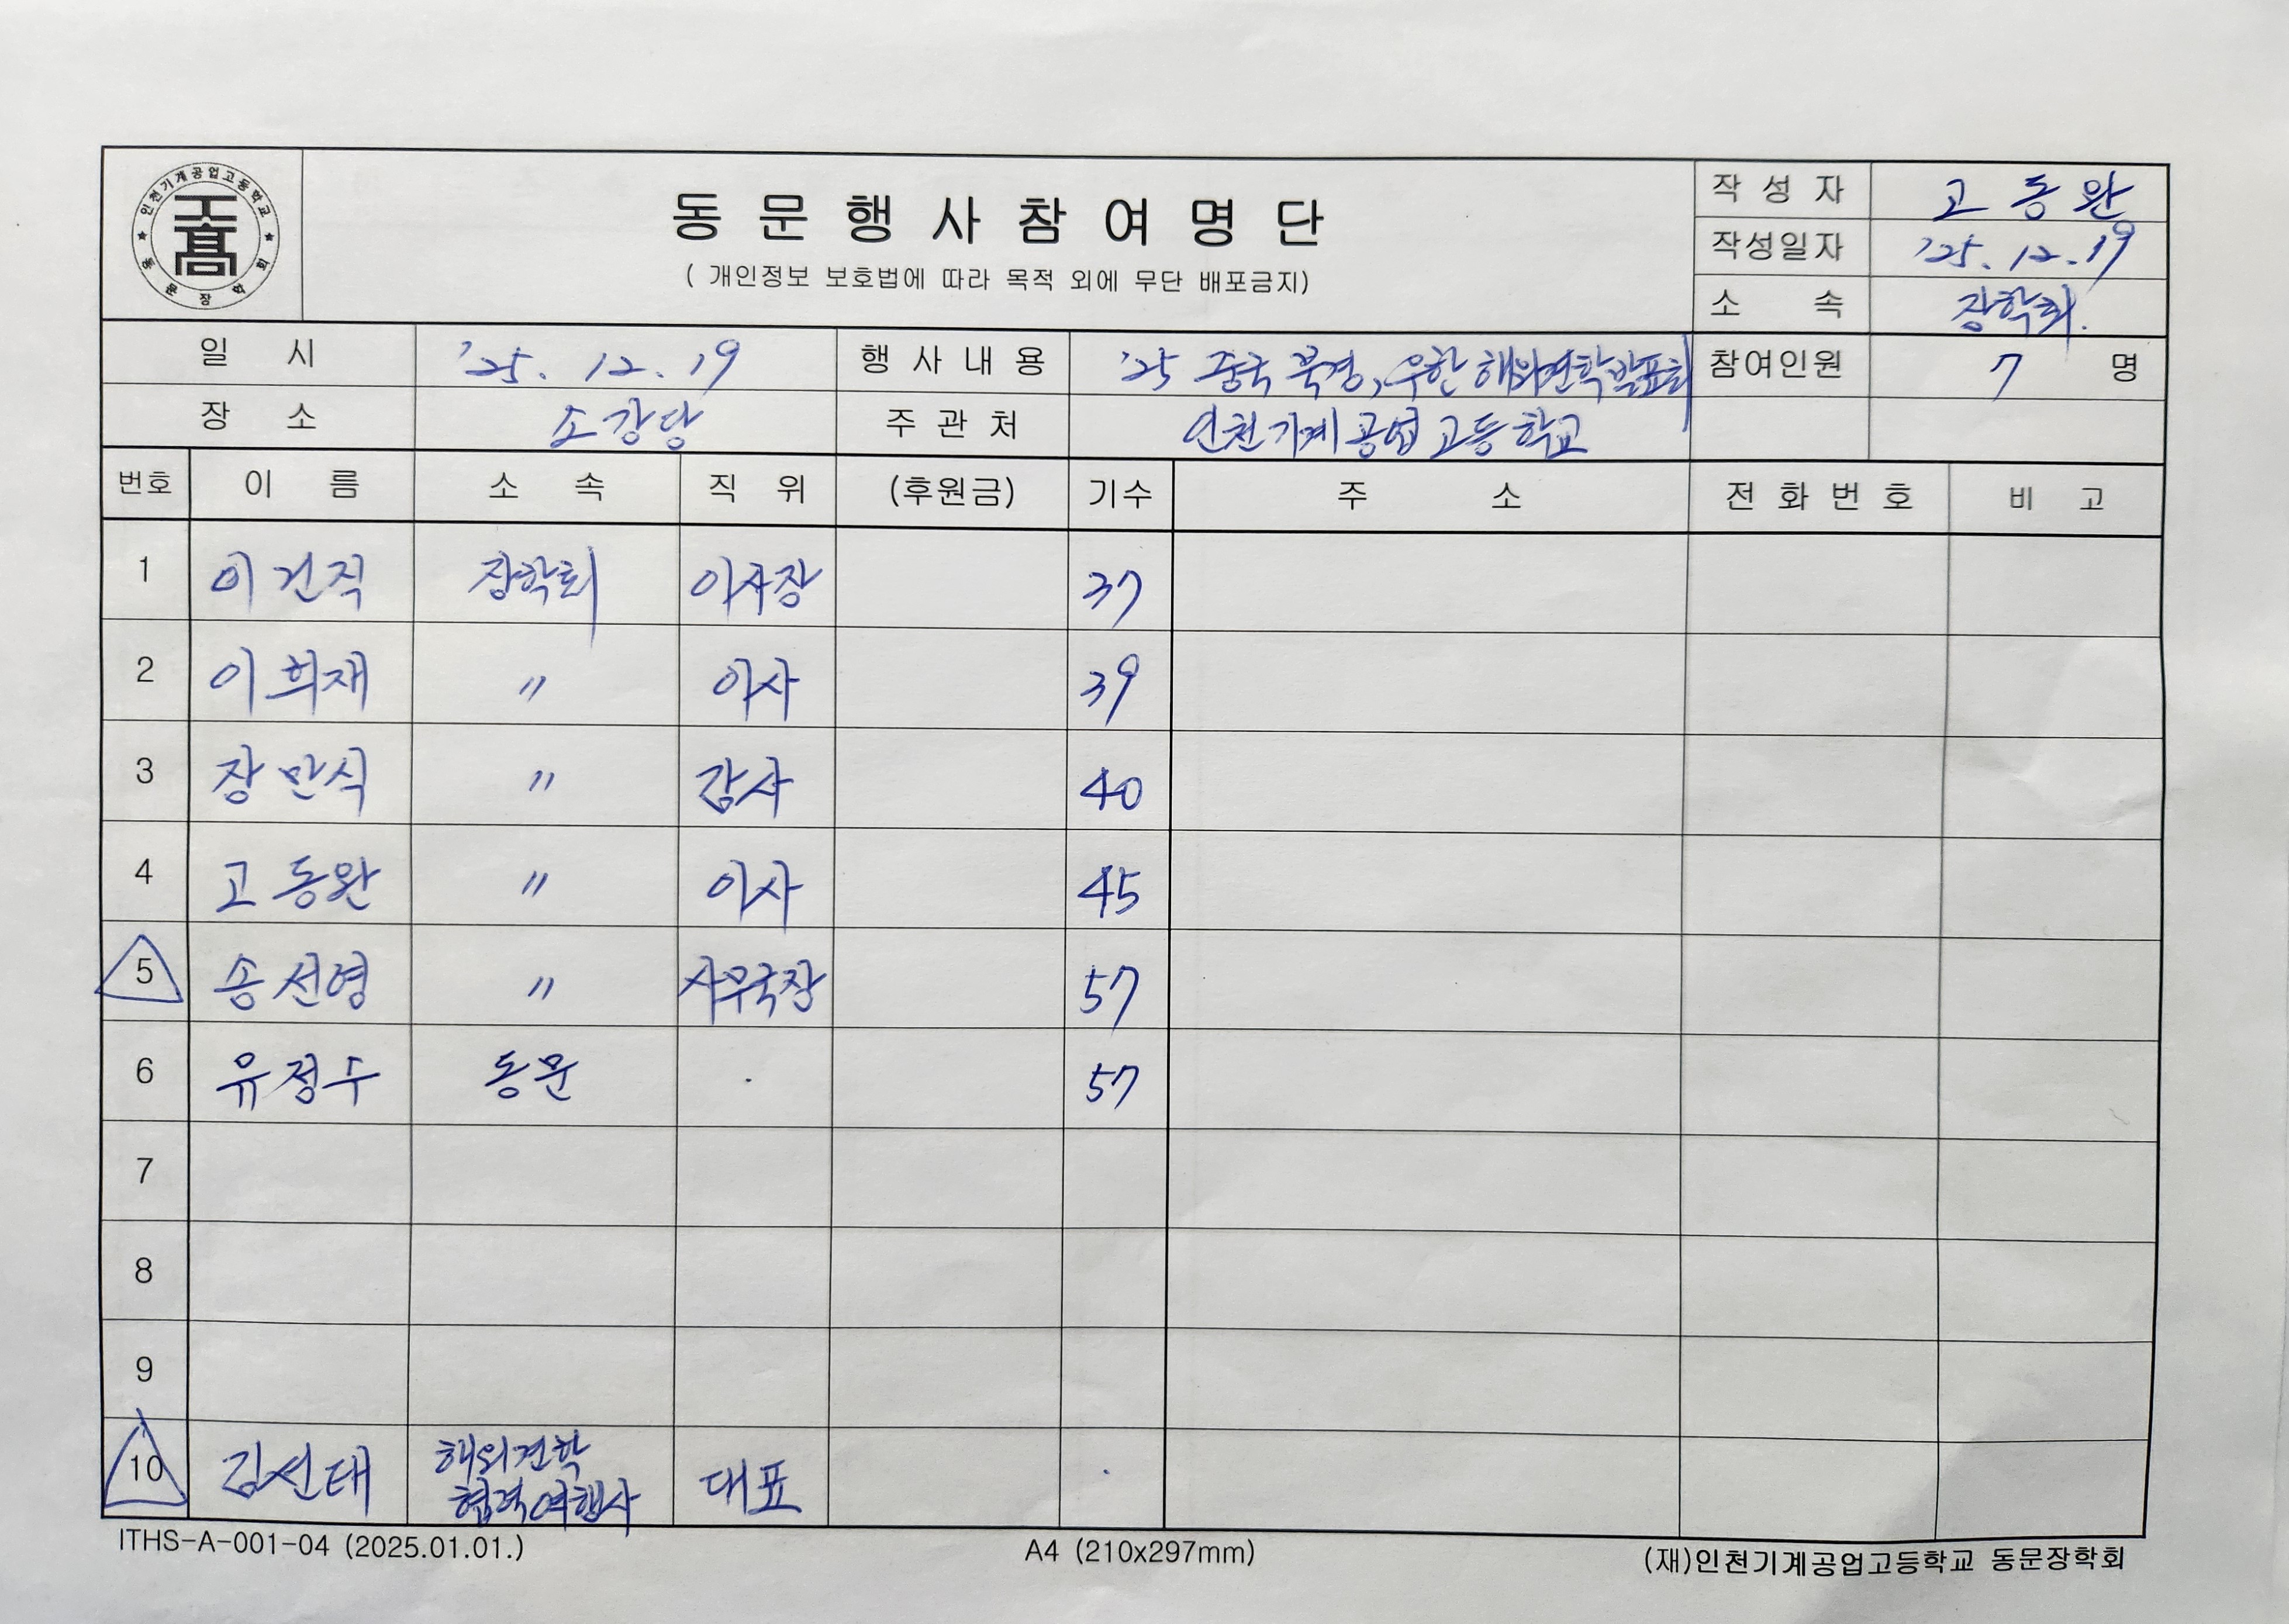 인천기계공업고등학교 동문장학회
工高
동문행사참여명단
( 개인정보 보호법에 따라 목적 외에 무단 배포금지)
작성자 고동완
작성일자 '25. 12. 19
소 속 장학회.
일 시 '25. 12. 19 행사내용 '25 중국 북경, 우한 해외견학발표회 참여인원 7 명
장 소 소강당 주관처 인천기계공업고등학교
번호 이 름 소 속 직 위 (후원금) 기수 주 소 전화번호 비 고
1 이건직 장학회 이사장 37
2 이희재 〃 이사 39
3 장만식 〃 감사 40
4 고동완 〃 이사 45
5 송선영 〃 사무국장 57
6 유정수 동문 . 57
7
8
9
10 김선태 해외견학 협력여행사 대표 .
ITHS-A-001-04 (2025.01.01.) A4 (210x297mm) (재)인천기계공업고등학교 동문장학회